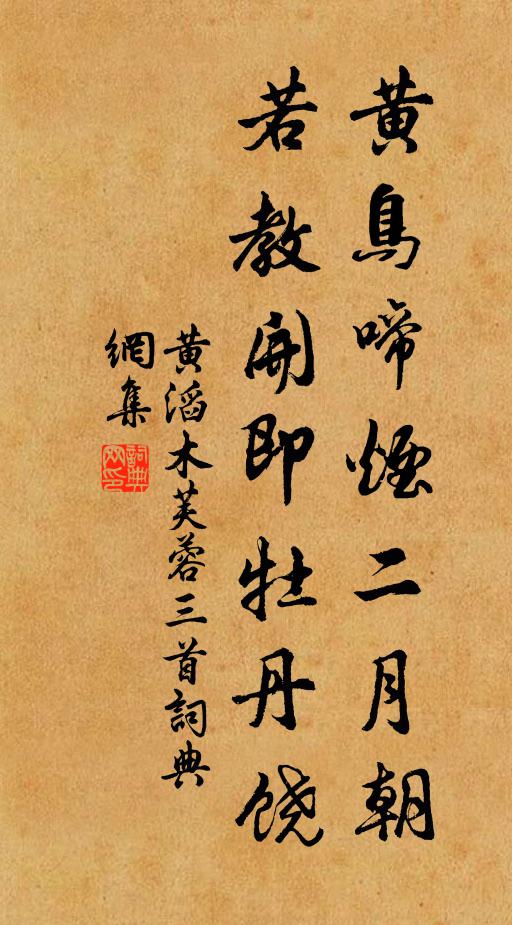 黄鳥啼煙二月朝
若教開即牡丹饒
黄滔木芙蓉三首詞典
網集
詞典
網印